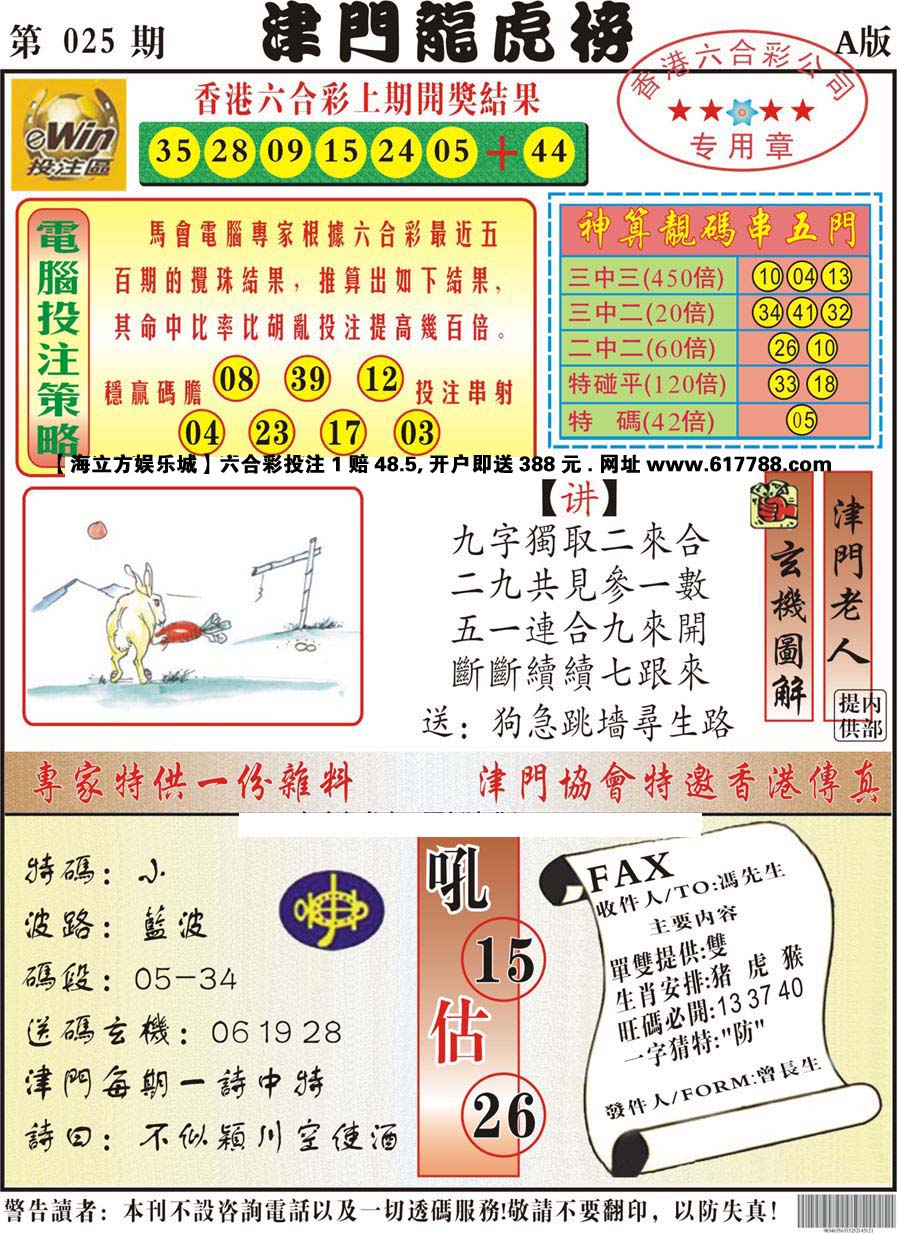 第 025 期
津門龍虎榜
A版
香港六合彩公司
专用章
eWin
投注區
香港六合彩上期開獎結果
35 28 09 15 24 05 + 44
電腦投注策略
馬會電腦專家根據六合彩最近五
百期的攪珠結果，推算出如下結果，
其命中比率比胡亂投注提高幾百倍。
穩贏碼膽 08 39 12 投注串射
04 23 17 03
神算靚碼串五門
三中三(450倍) 10 04 13
三中二(20倍) 34 41 32
二中二(60倍) 26 10
特碰平(120倍) 33 18
特 碼(42倍) 05
【海立方娱乐城】六合彩投注1赔48.5,开户即送388元.网址www.617788.com
【讲】
九字獨取二來合
二九共見參一數
五一連合九來開
斷斷續續七跟來
送：狗急跳墙尋生路
玄機圖解
津門老人
内部提供
專家特供一份雜料
津門協會特邀香港傳真
特碼：小
波路：藍波
碼段：05-34
送碼玄機：06 19 28
津門每期一詩中特
詩曰：不似穎川空使酒
吼
15
估
26
FAX
收件人/TO:馮先生
主要内容
單雙提供:雙
生肖安排:猪 虎 猴
旺碼必開:13 37 40
一字猜特:"防"
發件人/FORM:曾長生
警告讀者：本刊不設咨詢電話以及一切透碼服務!敬請不要翻印，以防失真!